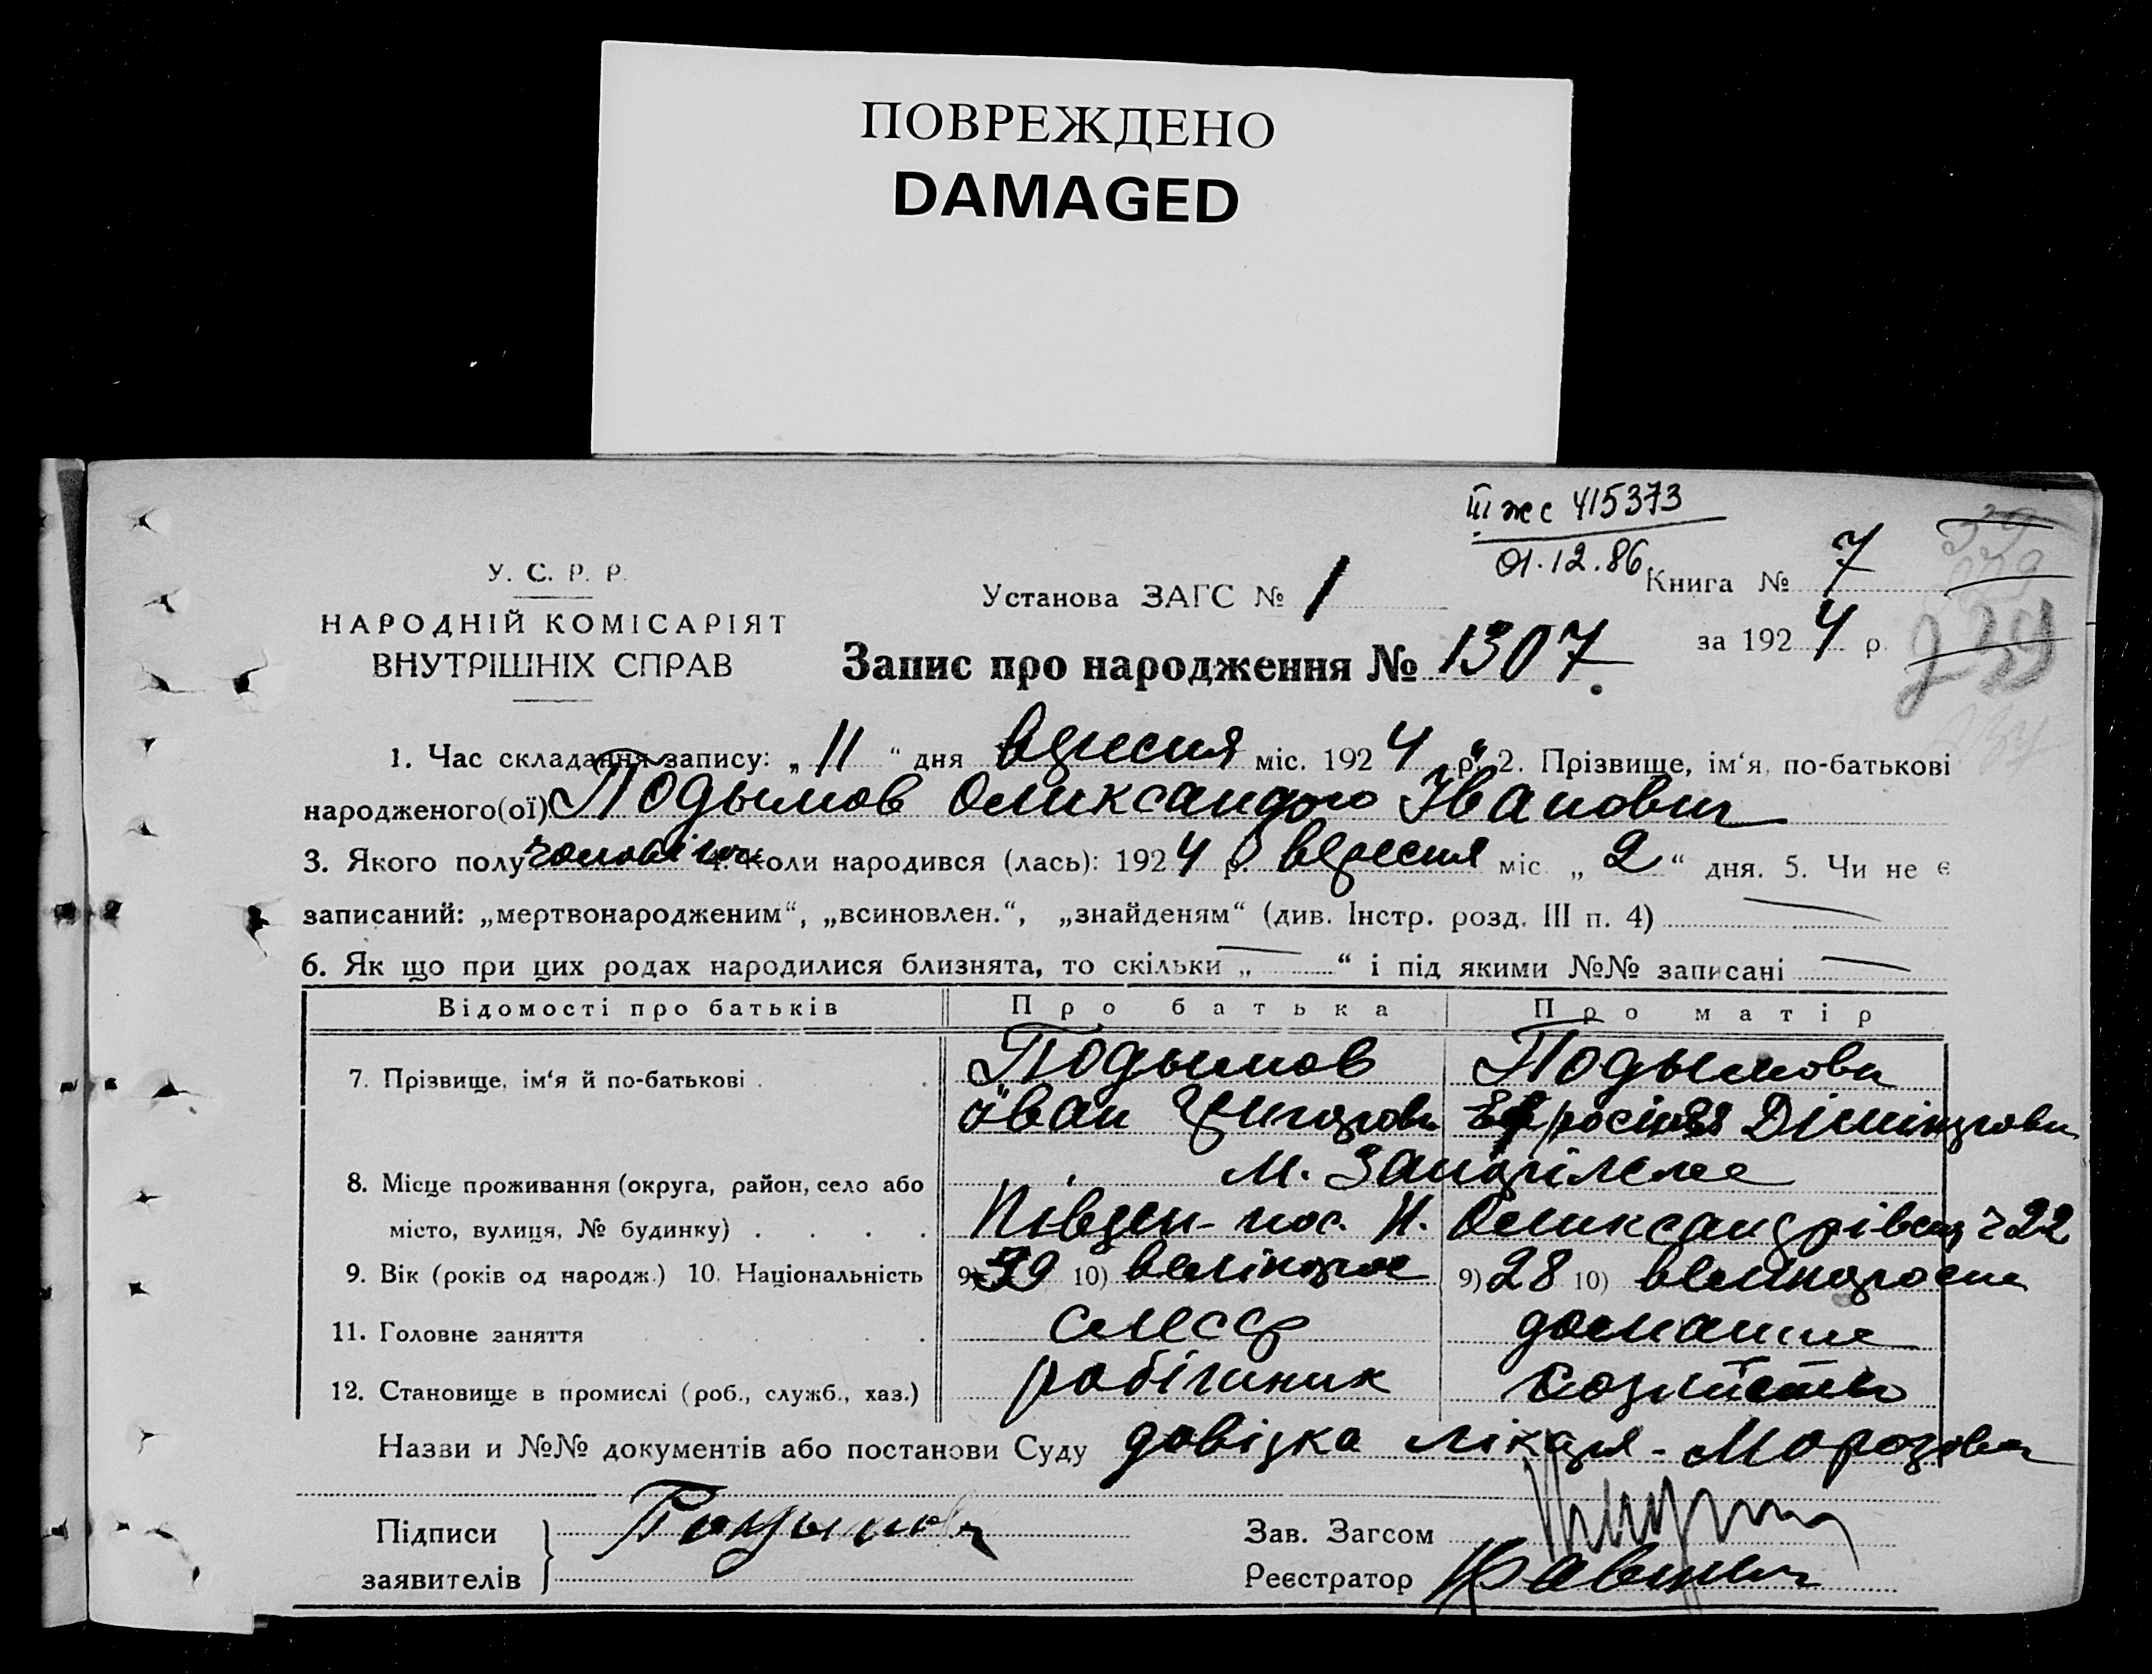 ПОВРЕЖДЕНО
DAMAGED
III жс 415373
01.12.86
У. С. Р. Р.
НАРОДНІЙ КОМІСАРІЯТ
ВНУТРІШНІХ СПРАВ
Установа ЗАГС № 1
Книга № 7
за 1924 р.
Запис про народження № 1307.
1. Час складання запису: „11“ дня вересня міс. 1924 р. 2. Прізвище, ім‘я, по-батькові
народженого(ої) Подымов Олександр Іванович
3. Якого полу чоловіч. 4. Коли народився (лась): 1924 р. вересня міс. „2“ дня. 5. Чи не є
записаний: „мертвонародженим“, „всиновлен.“, „знайденям“ (див. Інстр. розд. III п. 4) —
6. Як що при цих родах народилися близнята, то скільки „—“ і під якими №№ записані —
Відомості про батьків Про батька Про матір
7. Прізвище, ім‘я й по-батькові . . Подымов Подымова
Іван Григоров. Дімітрова
8. Місце проживання (округа, район, село або м.
місто, вулиця, № будинку) . . . . Південн. пос. Н. Олександрівськ 22
9. Вік (років од народж.) 10. Національність 9) 39 10) великорос 9) 28 10) великороска
11. Головне заняття . слесар домашне
12. Становище в промислі (роб., служб., хаз.) робітник хозяйство
Назви и №№ документів або постанови Суду довідка лікаря - Морозова
Підписи
заявителів } Подымов
Зав. Загсом
Реєстратор